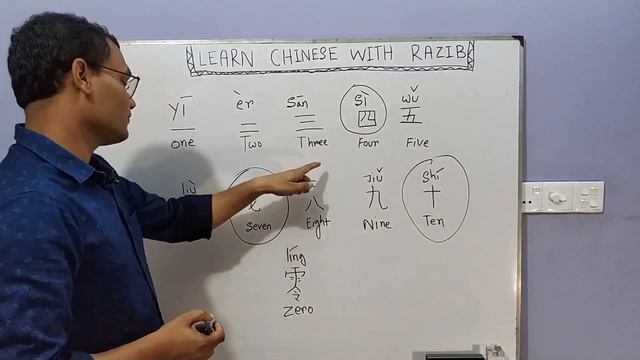 LEARN CHINESE WITH RAZIB
yī èr sān sì wǔ
一 二 三 四 五
One Two Three Four Five
liù jiǔ shí
八 九 十
Seven Eight Nine Ten
líng
零
Zero